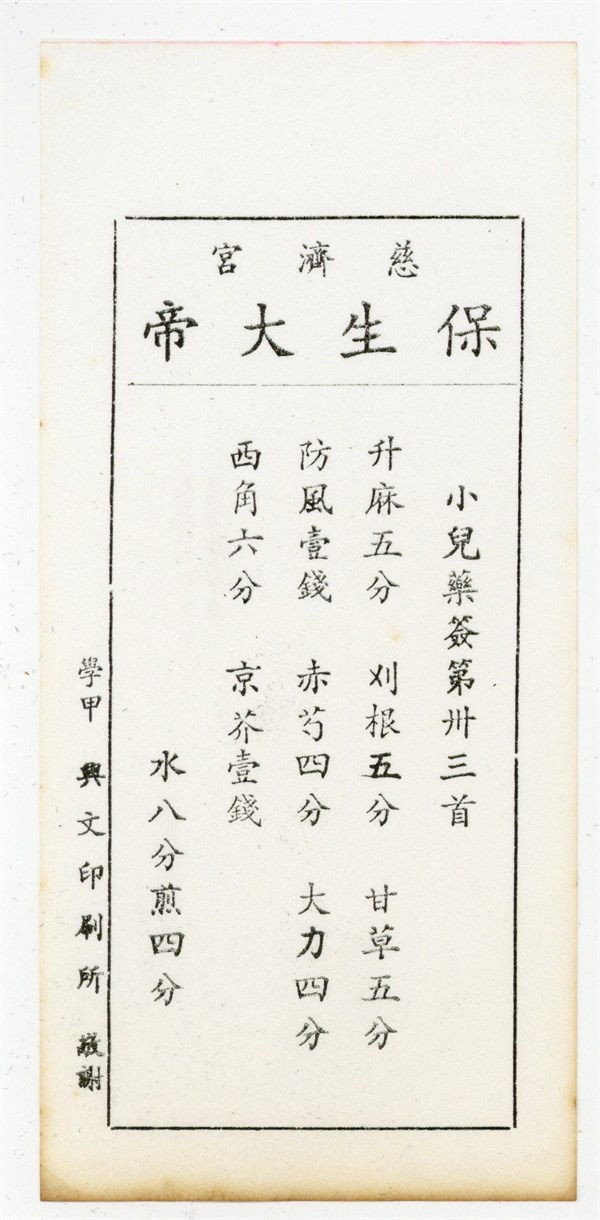 慈濟宮
保生大帝
小兒藥簽第卅三首
升麻五分 刈根五分 甘草五分
防風壹錢 赤芍四分 大力四分
西角六分 京芥壹錢
水八分煎四分
學甲 興文印刷所 敬謝